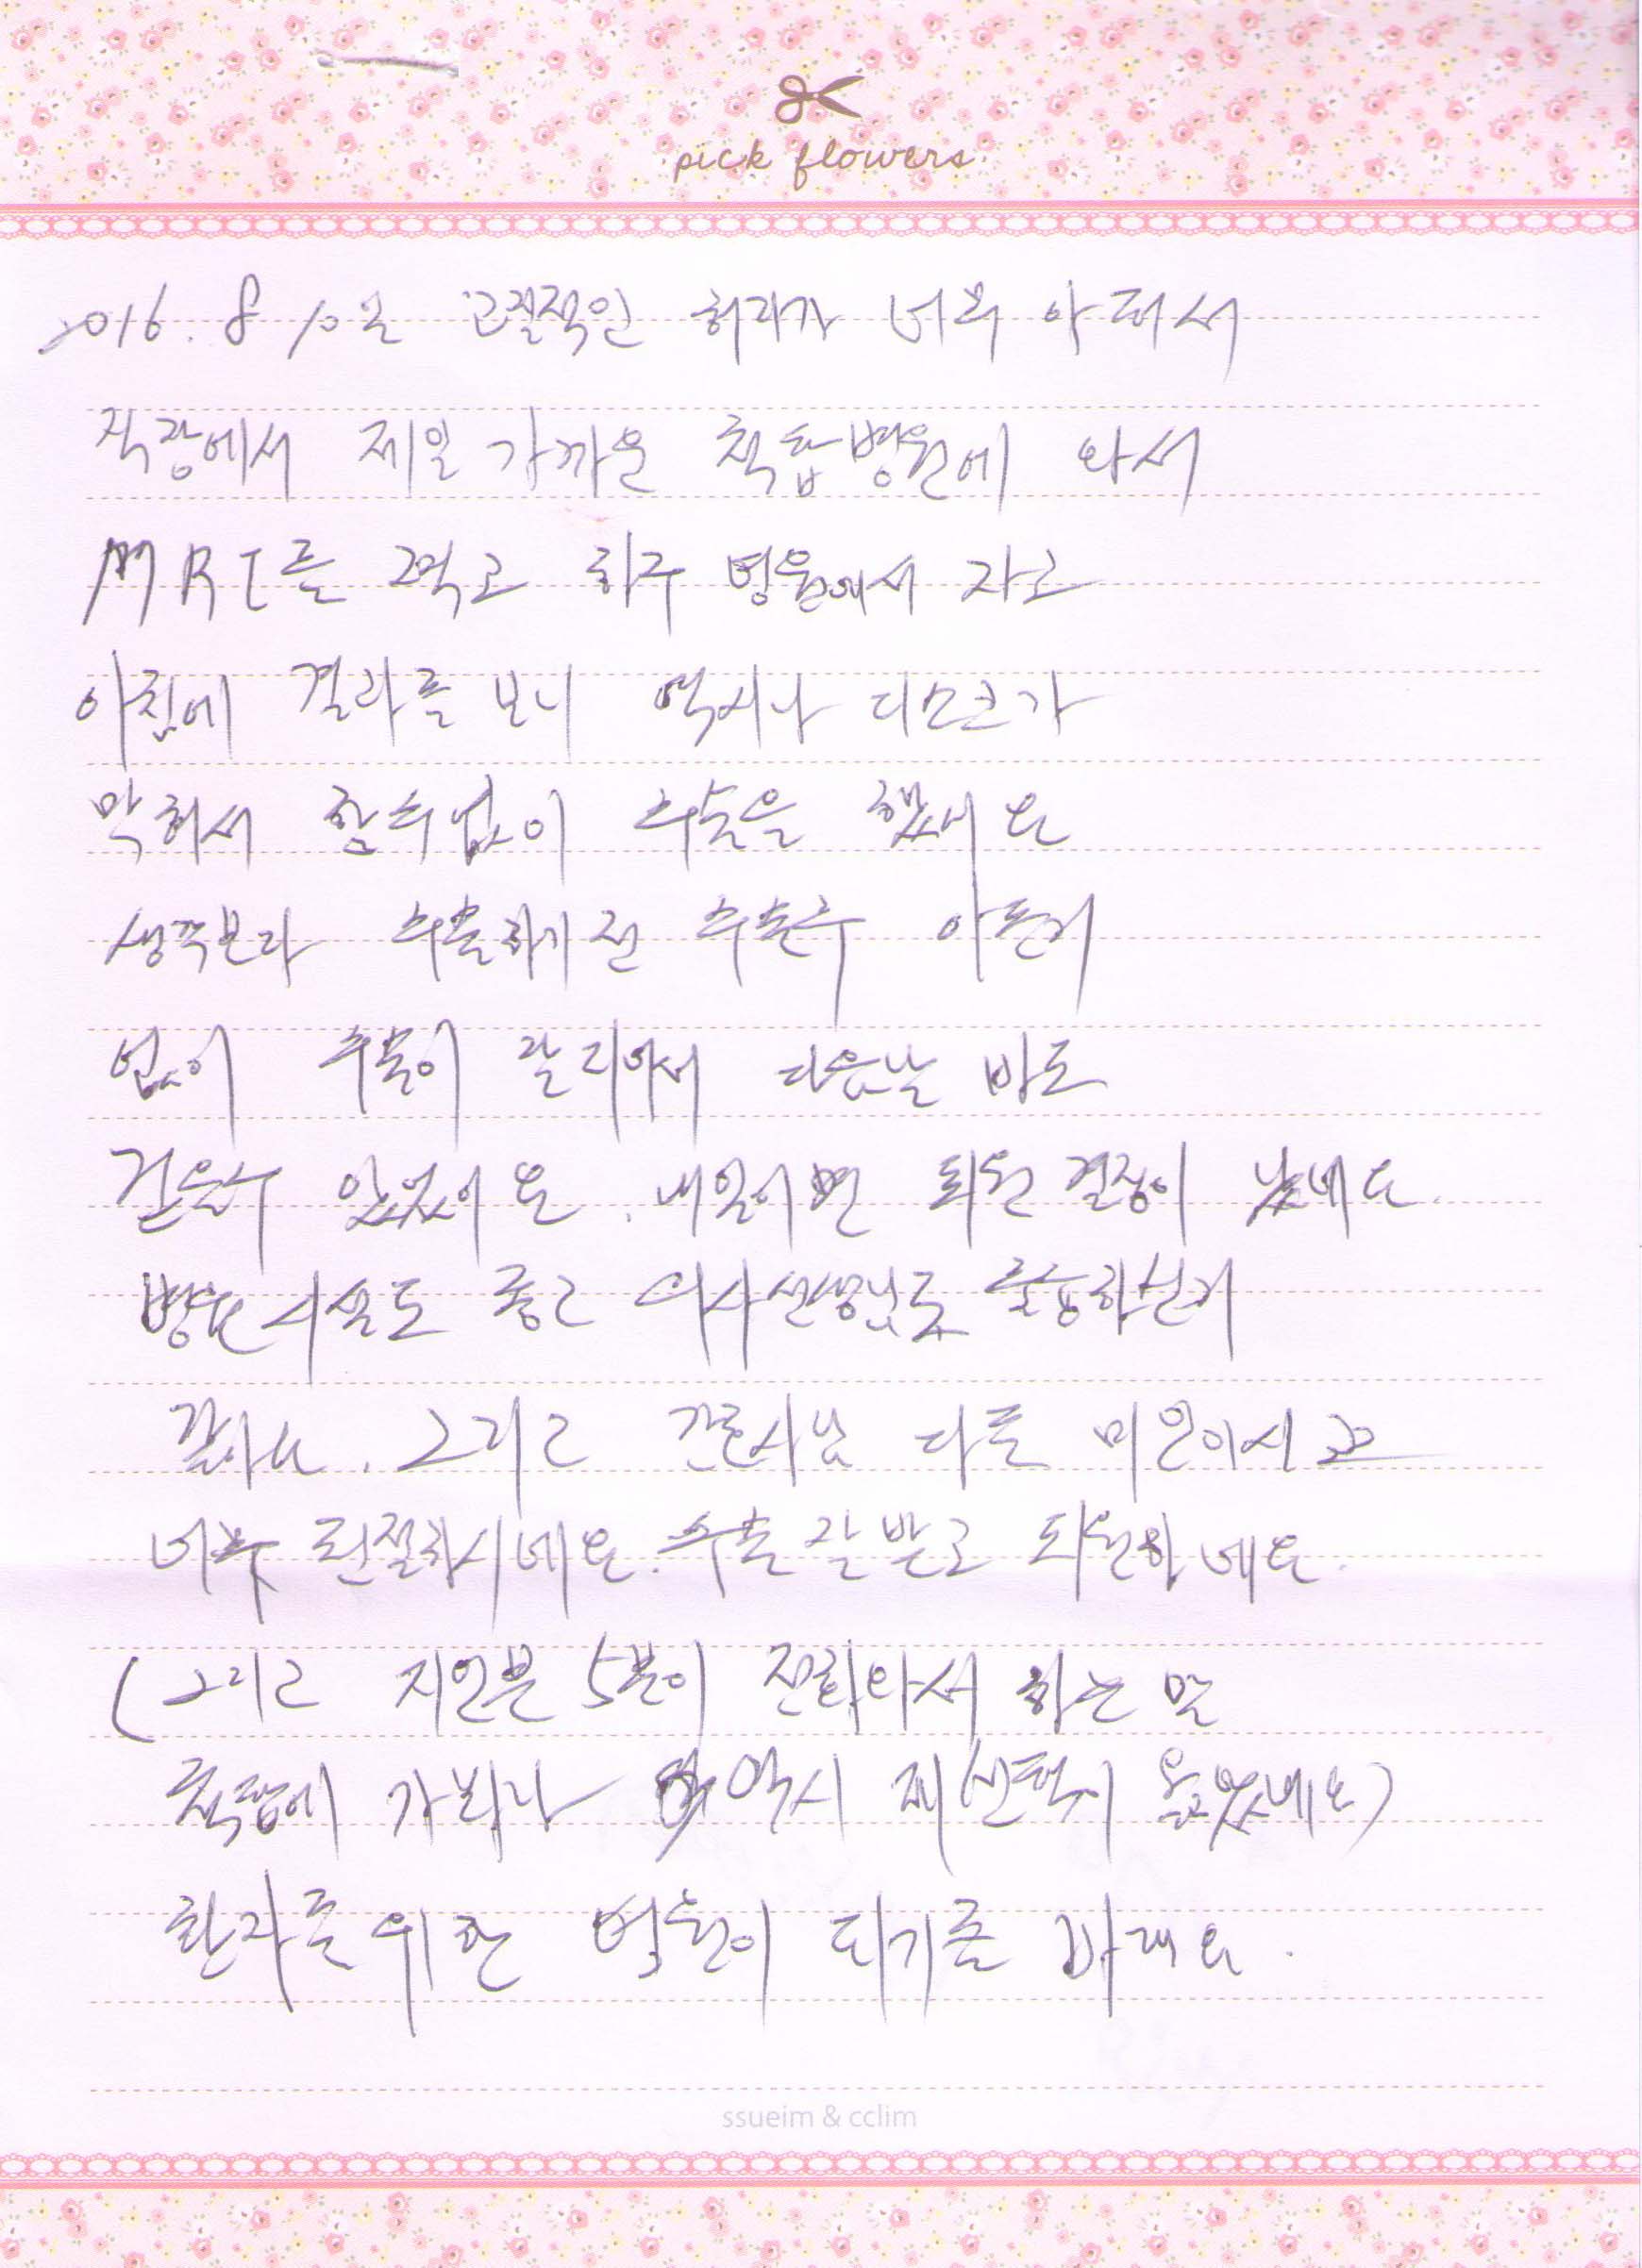 pick flowers
2016. 8 10일 고질적인 허리가 너무 아퍼서
직장에서 제일 가까운 척탑병원에 와서
MRI를 찍고 하루 병원에서 자고
아침에 결과를 보니 역시나 디스크가
막혀서 할수없이 수술을 했어요
생각보다 수술하기전 수술후 아픈거
없이 수술이 잘되어서 다음날 바로
걸을수 있었어요. 내일이면 퇴원 결정이 났네요.
병원시설도 좋고 의사선생님도 훌륭하신거
같아요. 그리고 간호사님 다들 미인이시고
너무 친절하시네요. 수술 잘 받고 퇴원하네요.
(그리고 지인분 5분이 전화와서 하는 말
척탑에 가봐라 역시 제 선택이 옳았네요)
환자를 위한 병원이 되기를 바래요.
ssueim & cclim